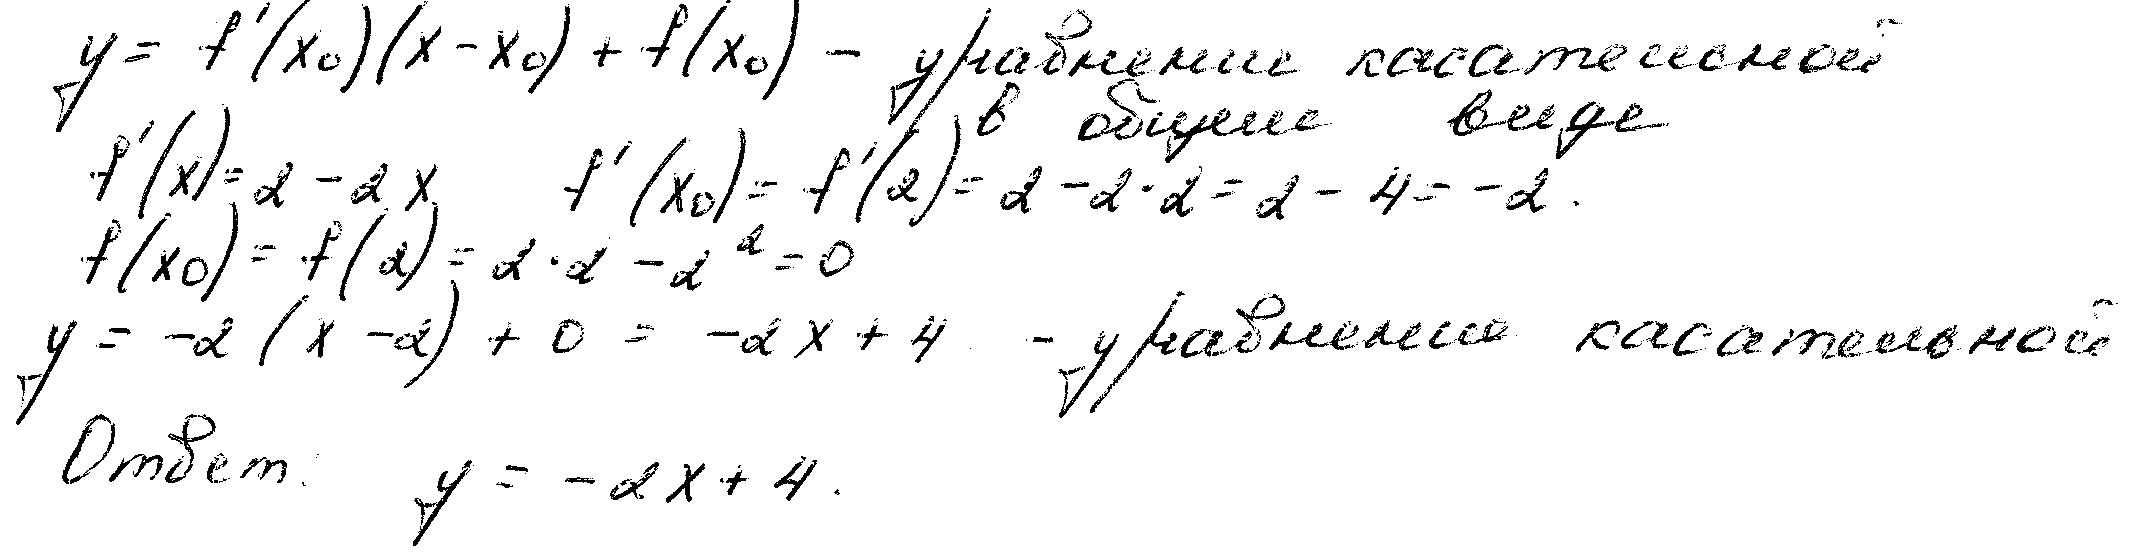 y = f'(x₀)(x - x₀) + f(x₀) - уравнение касательной
в общем виде
f'(x) = 2 - 2x f'(x₀) = f'(2) = 2 - 2·2 = 2 - 4 = -2.
f(x₀) = f(2) = 2·2 - 2² = 0
y = -2(x - 2) + 0 = -2x + 4 - уравнение касательной
Ответ: y = -2x + 4.